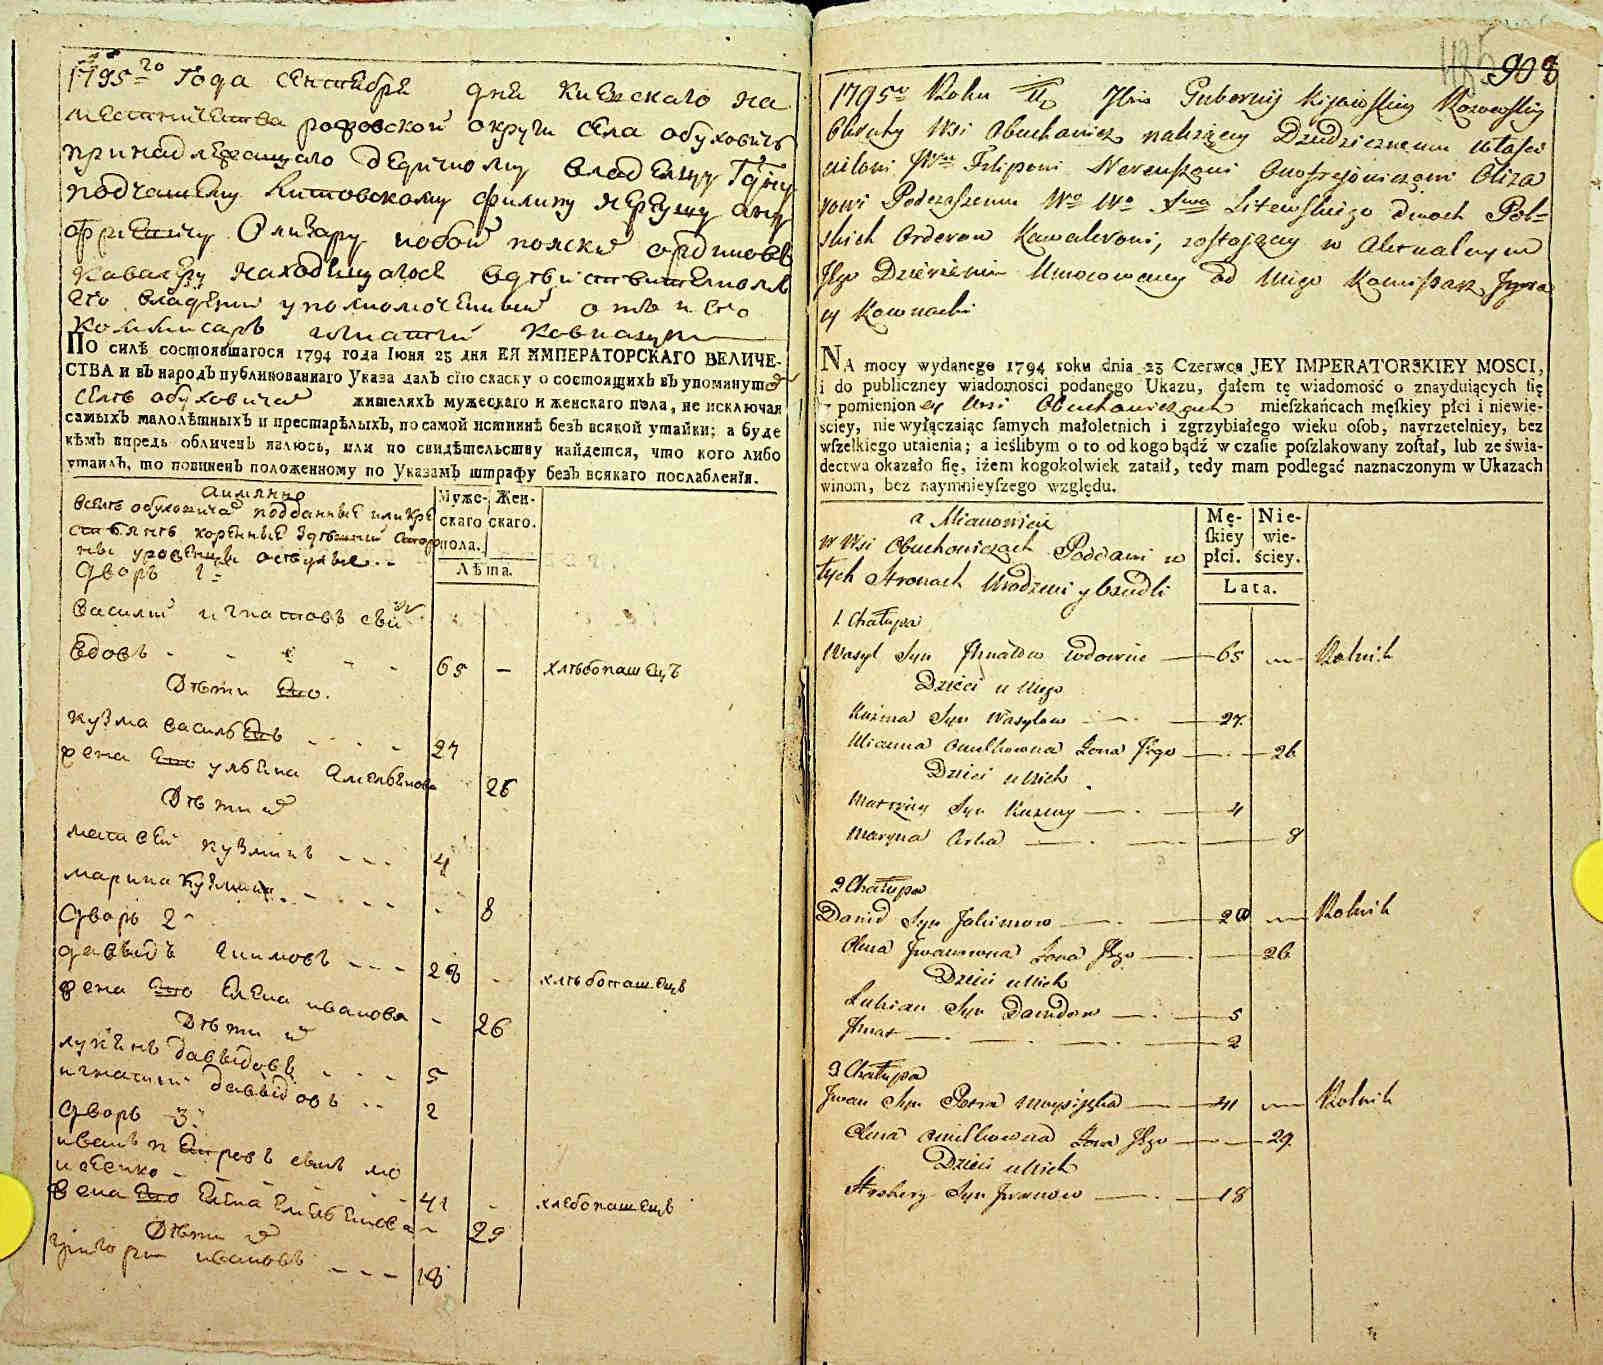 1795го Года сентебре дня Киевскаго на
местничества рафовской округи села обуховичъ
принадлежащаго дедичному владельцу Гдну
подчашему Литовскому Филипу Нереушу ону
фриевичу Олизару польски ординовъ
Кавалеру находящагосе вдтвиствителном
его владении уполномоченный отъ него
Коммисаръ игнатий Ковнацки
По силѣ состоявшагося 1794 года Іюня 23 дня ЕЯ ИМПЕРАТОРСКАГО ВЕЛИЧЕ-
СТВА и въ народъ публикованнаго Указа далъ сїю скаску о состоящихъ въ упомянутом
селѣ обуховичах жителяхъ мужескаго и женскаго пола, не исключая
самыхъ малолѣтныхъ и престарѣлыхъ, по самой истиннѣ безъ всякой утайки; а буде
кѣмъ впредь обличенъ явлюсь, или по свидѣтельству найдется, что кого либо
утаилъ, то повиненъ положенному по Указамъ штрафу безъ всякаго послабленїя.
аимянно
вселѣ обуховичах подданные или кре
стьянѣ коренные здѣшний сторо
ны уроженцы оседлые
Муже- Жен-
скаго скаго.
пола.
Лѣта.
дворъ 1
василий игнатовъ сын
вдовъ - - - 65 — хлѣбопашецъ
Дѣти его.
кузма васильевъ - - - 27
жена его ульяна Амельянова 26
Дѣти их
матвей кузминъ - - - 4
марина кузмина - - - 8
дворъ 2
давыдъ якимовъ - - - 28 - хлѣбопашецъ
жена его Елена иванова - 26
Дѣти их
лукьянъ давыдовъ - - - 5
игнатий давыдовъ - - 2
дворъ 3
иванъ петровъ сынъ мо
исеенко - - - 41 - хлебопашецъ
жена его елена емельянова - 29
Дѣти их
григорий ивановъ - - - 18
908
1795o Roku Jbris Gubernij Kijowskiey Rozowskiey
Okruhy Wsi Obuchowicz należącey Dziedzicznemu Właści
cielowi JWmu Filipowi Nereuszowi Onofrejowiczowi Oliza
rowi Podczaszemu Wo Wo Xtwa Litewskiego dwoch Pol-
skich Orderow Kawalerowi, zostającey w Aktualnym
Jego Dzierżeniu Umocowany od Niego Komisarz Jgna
cy Kownacki
NA mocy wydanego 1794 roku dnia 23 Czerwca JEY IMPERATORSKIEY MOSCI,
i do publiczney wiadomości podanego Ukazu, dałem tę wiadomość o znayduiących ſię
w pomienioney Wsi Obuchowiczach mieſzkańcach męſkiey płci i niewie-
ściey, nie wyłączaiąc ſamych małoletnich i zgrzybiałego wieku oſob, nayrzetelniey, bez
wſzelkiego utaienia; a ieślibym o to od kogo bądź w czaſie poſzlakowany zoſtał, lub ze świa-
dectwa okazało ſię, iżem kogokolwiek zataił, tedy mam podlegać naznaczonym w Ukazach
winom, bez naymnieyſzego względu.
a Mianowicie
w Wsi Obuchowiczach Poddani w
tych Stronach Urodzeni y Osiedli
Mę- Nie-
ſkiey wie-
płci. ściey.
Lata.
1. Chałupa
Wasyl Syn Jhnatow wdowiec — 65 — Rolnik
Dzieci u Niego
Kuzma Syn Wasylow — 27.
Ulianna Omelkowna Żona Jego — 26
Dzieci u Nich
Matwiey Syn Kuzmy — 4
Maryna Corka — 8
2 Chałupa
Dawid Syn Jakimow — 28 — Rolnik
Olena Jwanowna Żona Jego — 26
Dzieci u Nich
Lukian Syn Dawidow — 5
Jhnat — 2
3 Chałupa
Jwan Syn Petra Moysijenka — 41 — Rolnik
Olena Omelkowna Żona Jego — 29
Dzieci u Nich
Hryhory Syn Jwanow — 18